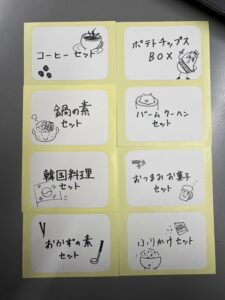 コーヒーセット
ポテトチップス
BOX
鍋の素
セット
バームクーヘン
セット
韓国料理
セット
おつまみお菓子
セット
おかずの素
セット
ふりかけセット